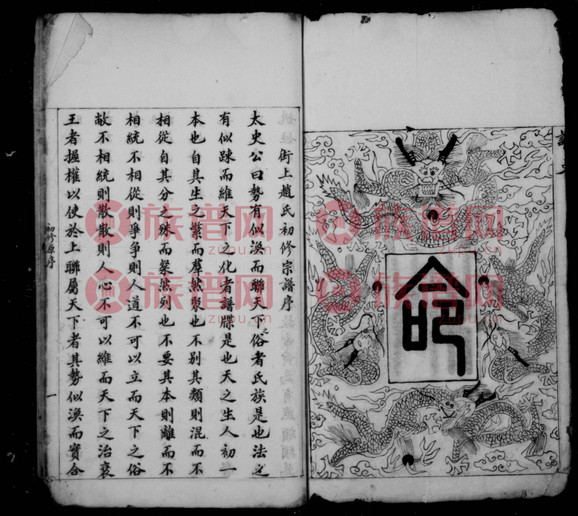 命
街上趙氏初修宗譜序
太史公曰勢有似渙而聯天下俗者氏族是也法之
有似踈而維天下之化者譜牒是也天之生人初一
本也自其生之繁而羣然聚也不别其類則混而不
相從自其分之殊而粲然列也不要其本則離而不
相統不相從則爭爭則人道不可以立而天下之俗
敝不相統則散散則人心不可以維而天下之治衰
王者握權以使於上聯屬天下者其勢似渙而實合
初修原序
一
族谱网
zupu.cn
族谱网
zupu.cn
族谱网
zupu.cn
族谱网
zupu.cn